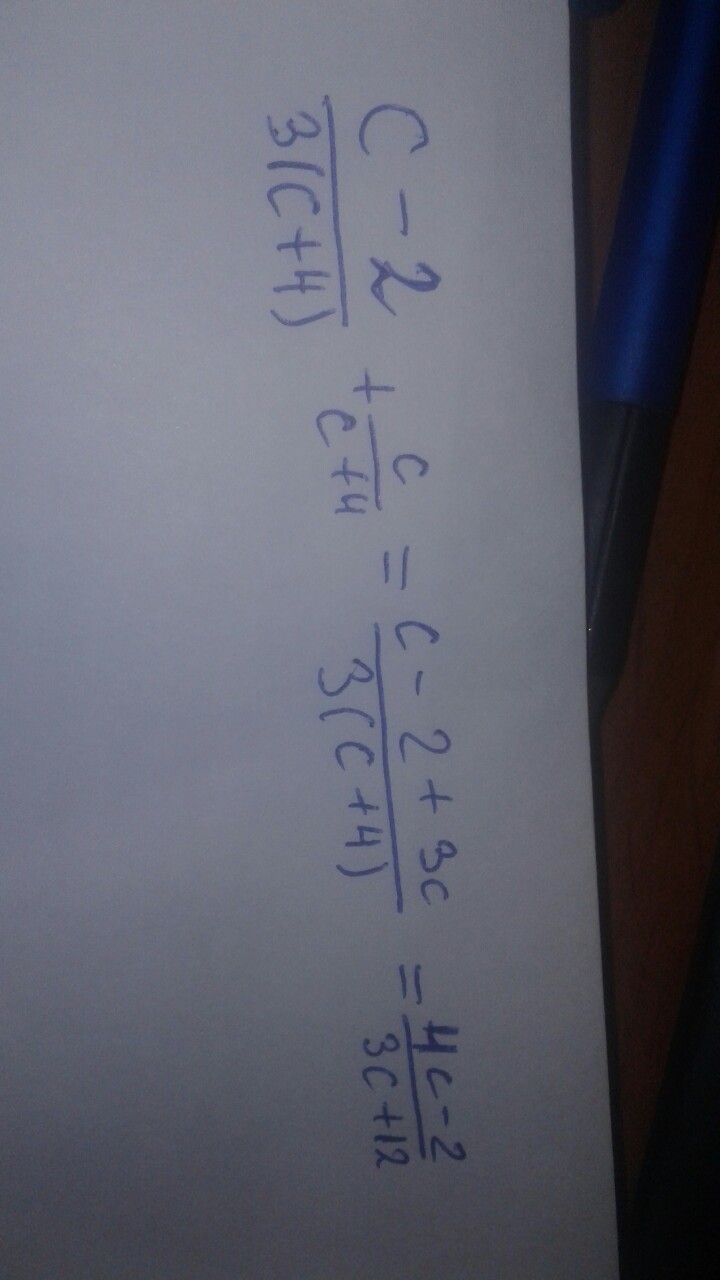 (C-2)/(3(C+4)) + c/(c+4) = (c-2+3c)/(3(c+4)) = (4c-2)/(3c+12)